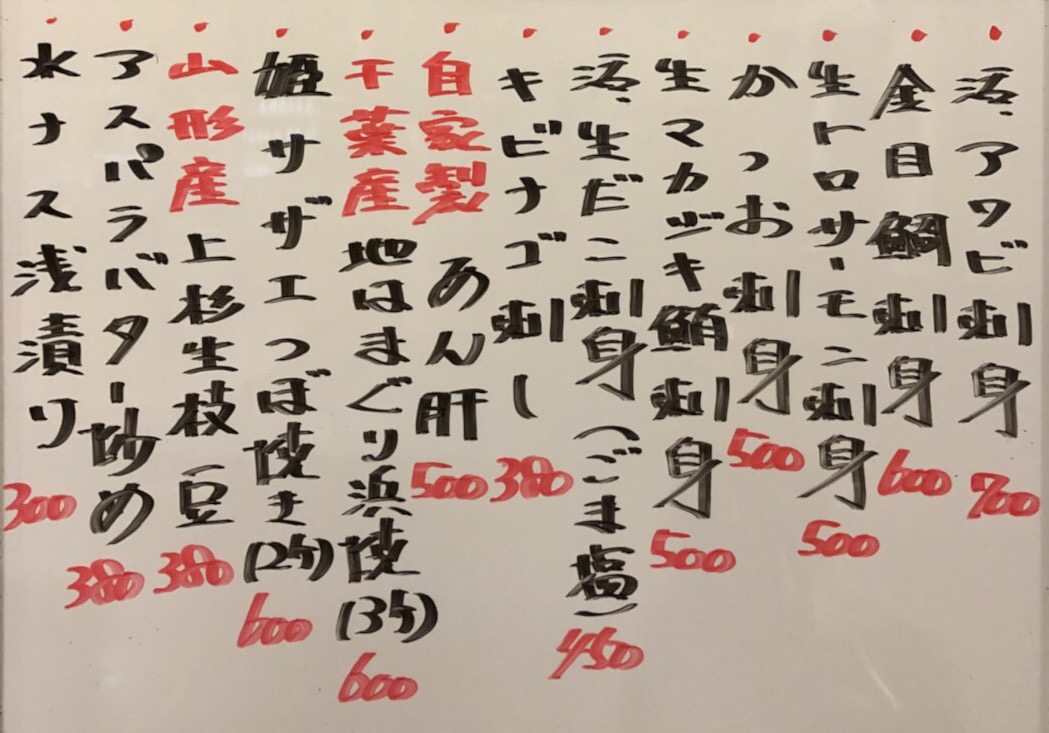 活、アワビ刺身 700
金目鯛刺身 600
生トロサーモン刺身 500
かつお刺身 500
生マカジキ鮪刺身 500
活、生だこ刺身（ごま塩） 450
キビナゴ刺し 380
自家製あん肝 500
千葉産地はまぐり浜焼(3ケ) 600
姫サザエつぼ焼き(2ケ) 600
山形産上杉生枝豆 380
アスパラバター炒め 380
水ナス浅漬り 300